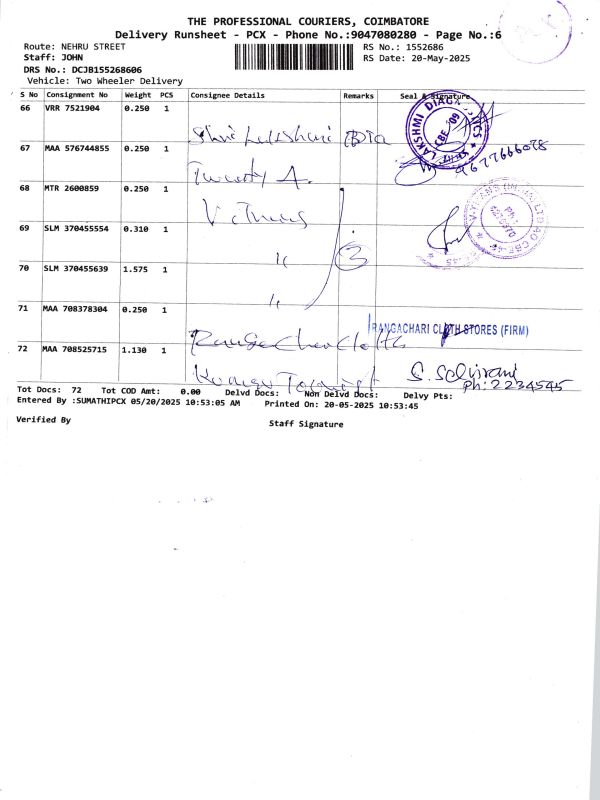 THE PROFESSIONAL COURIERS, COIMBATORE
Delivery Runsheet - PCX - Phone No.:9047080280 - Page No.:6
Route: NEHRU STREET
RS No.: 1552686
Staff: JOHN
RS Date: 20-May-2025
DRS No.: DCJB155268606
Vehicle: Two Wheeler Delivery
S No Consignment No Weight PCS Consignee Details Remarks Seal & Signature
66 VRR 7521904 0.250 1
LAKSHMI DIAGNOSTICS
CBE '09
67 MAA 576744855 0.250 1
9677999078
Twenty A.
68 MTR 2600859 0.250 1
69 SLM 370455554 0.310 1
" 3
70 SLM 370455639 1.575 1
"
71 MAA 708378304 0.250 1
RANGACHARI CLOTH STORES (FIRM)
72 MAA 708525715 1.130 1
S. Selvirani
Ph: 2234545
Tot Docs: 72 Tot COD Amt: 0.00 Delvd Docs: Non Delvd Docs: Delvy Pts:
Entered By :SUMATHIPCX 05/20/2025 10:53:05 AM Printed On: 20-05-2025 10:53:45
Verified By
Staff Signature